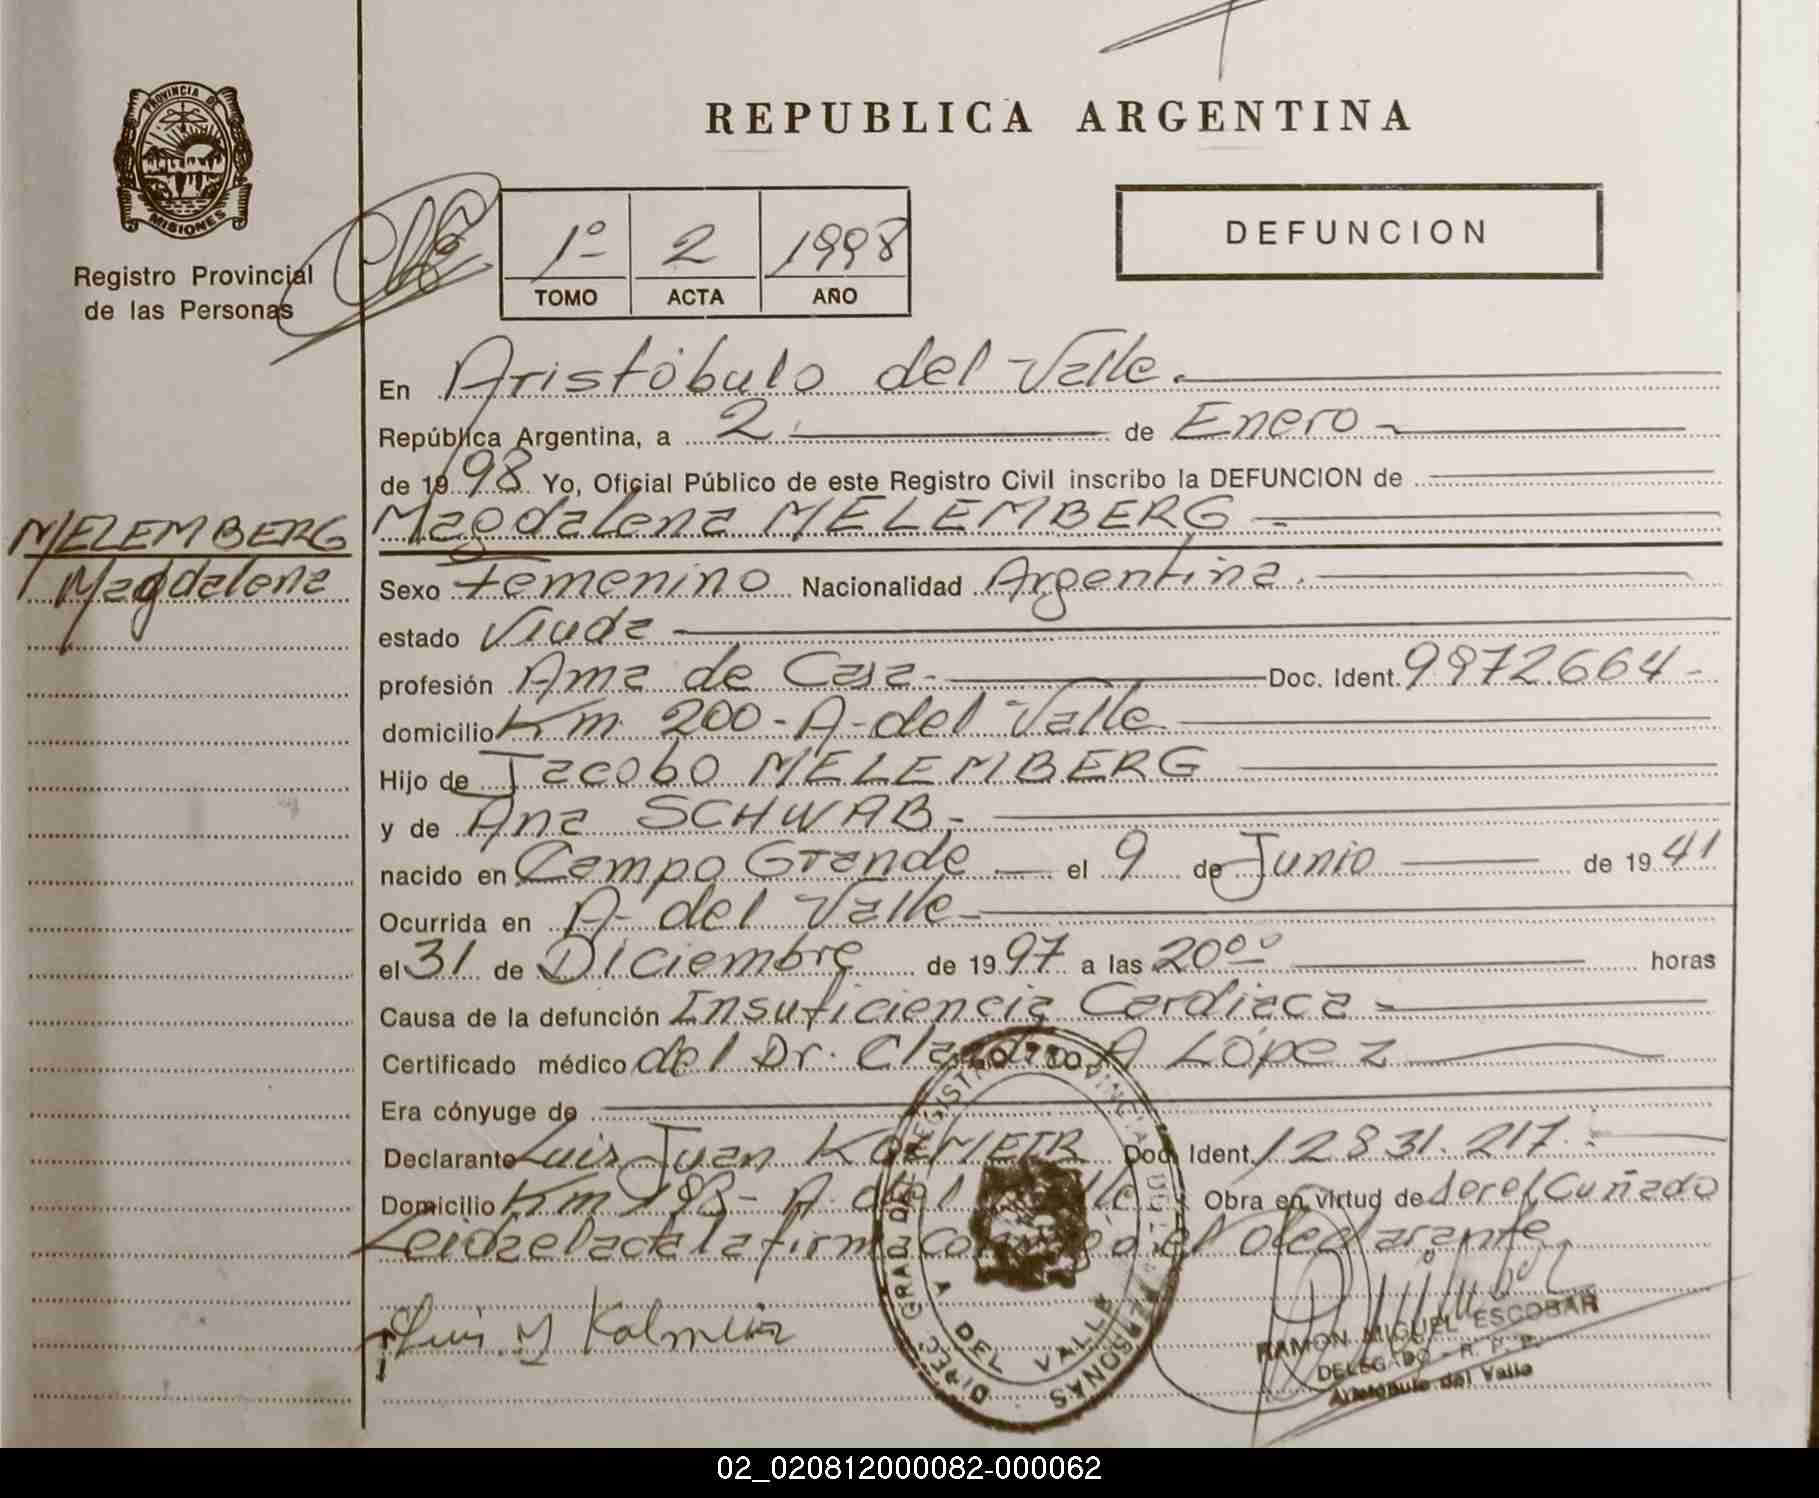 PROVINCIA DE
MISIONES
Registro Provincial
de las Personas
REPUBLICA ARGENTINA
1º 2 1998
TOMO ACTA AÑO
DEFUNCION
En Aristóbulo del Valle.
República Argentina, a 2 de Enero
de 1998 Yo, Oficial Público de este Registro Civil inscribo la DEFUNCION de
Magdalena MELEMBERG
MELEMBERG
Magdalena
Sexo femenino Nacionalidad Argentina.
estado Viuda
profesión Ama de Casa- Doc. Ident. 9972664-
domicilio Km 200-A-del Valle
Hijo de Jacobo MELEMBERG
y de Ana SCHWAB-
nacido en Campo Grande el 9 de Junio de 1941
Ocurrida en A- del Valle-
el 31 de Diciembre de 1997 a las 20ºº horas
Causa de la defunción Insuficiencia Cardiaca-
Certificado médico del Dr. Claudio A López
Era cónyuge de
Declarante Luis Juan Doc. Ident. 12831.217.
Domicilio Km 198- A. del Valle Obra en virtud de ser el Cuñado
Leida el acta la firma conmigo el declarante
Luis
DIREC. GRAL. DEL REGISTRO PROVINCIAL DE LAS PERSONAS
A DEL VALLE
RAMON MIGUEL ESCOBAR
DELEGADO - R. P. P.
Aristóbulo del Valle
02_020812000082-000062